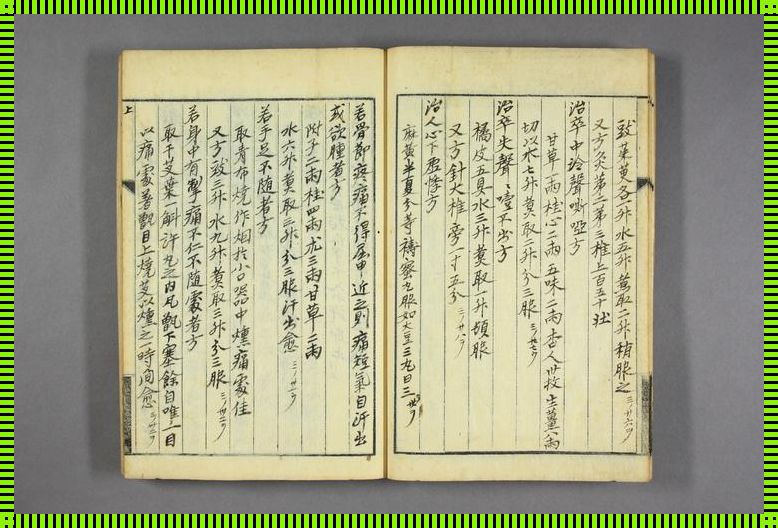 豉茱萸各一升水五升煮取二升稍服之三ノ廿六ウ
又方灸第二第三椎上百五十壯
治卒中冷聲嘶啞方
甘草一兩桂心二兩五味二兩杏人卅枚生薑八兩
切以水七升煮取二升分三服三ノ廿七ウ
治卒失聲〻噎不出方
橘皮五具水三升煮取一升頓服
又方針大椎旁一寸五分三ノ廿八ウ
治人心下虛悸方
麻黃半夏分等擣蜜丸服如大豆三丸日三
若骨節疼痛不得屈申近之則痛短氣自汗出
或欲腫者方
附子二兩桂四兩朮三兩甘草二兩
水六升煮取三升分三服汗出愈
若手足不隨者方
取青布燒作烟於小口器中燻痛處佳
又方豉三升水九升煮取三升分三服
若身中有掣痛不仁不隨處者方
取干艾葉一斛許丸之內瓦甑下塞餘目唯一目
以痛處著甑目上燒艾以燻之一時間愈
上